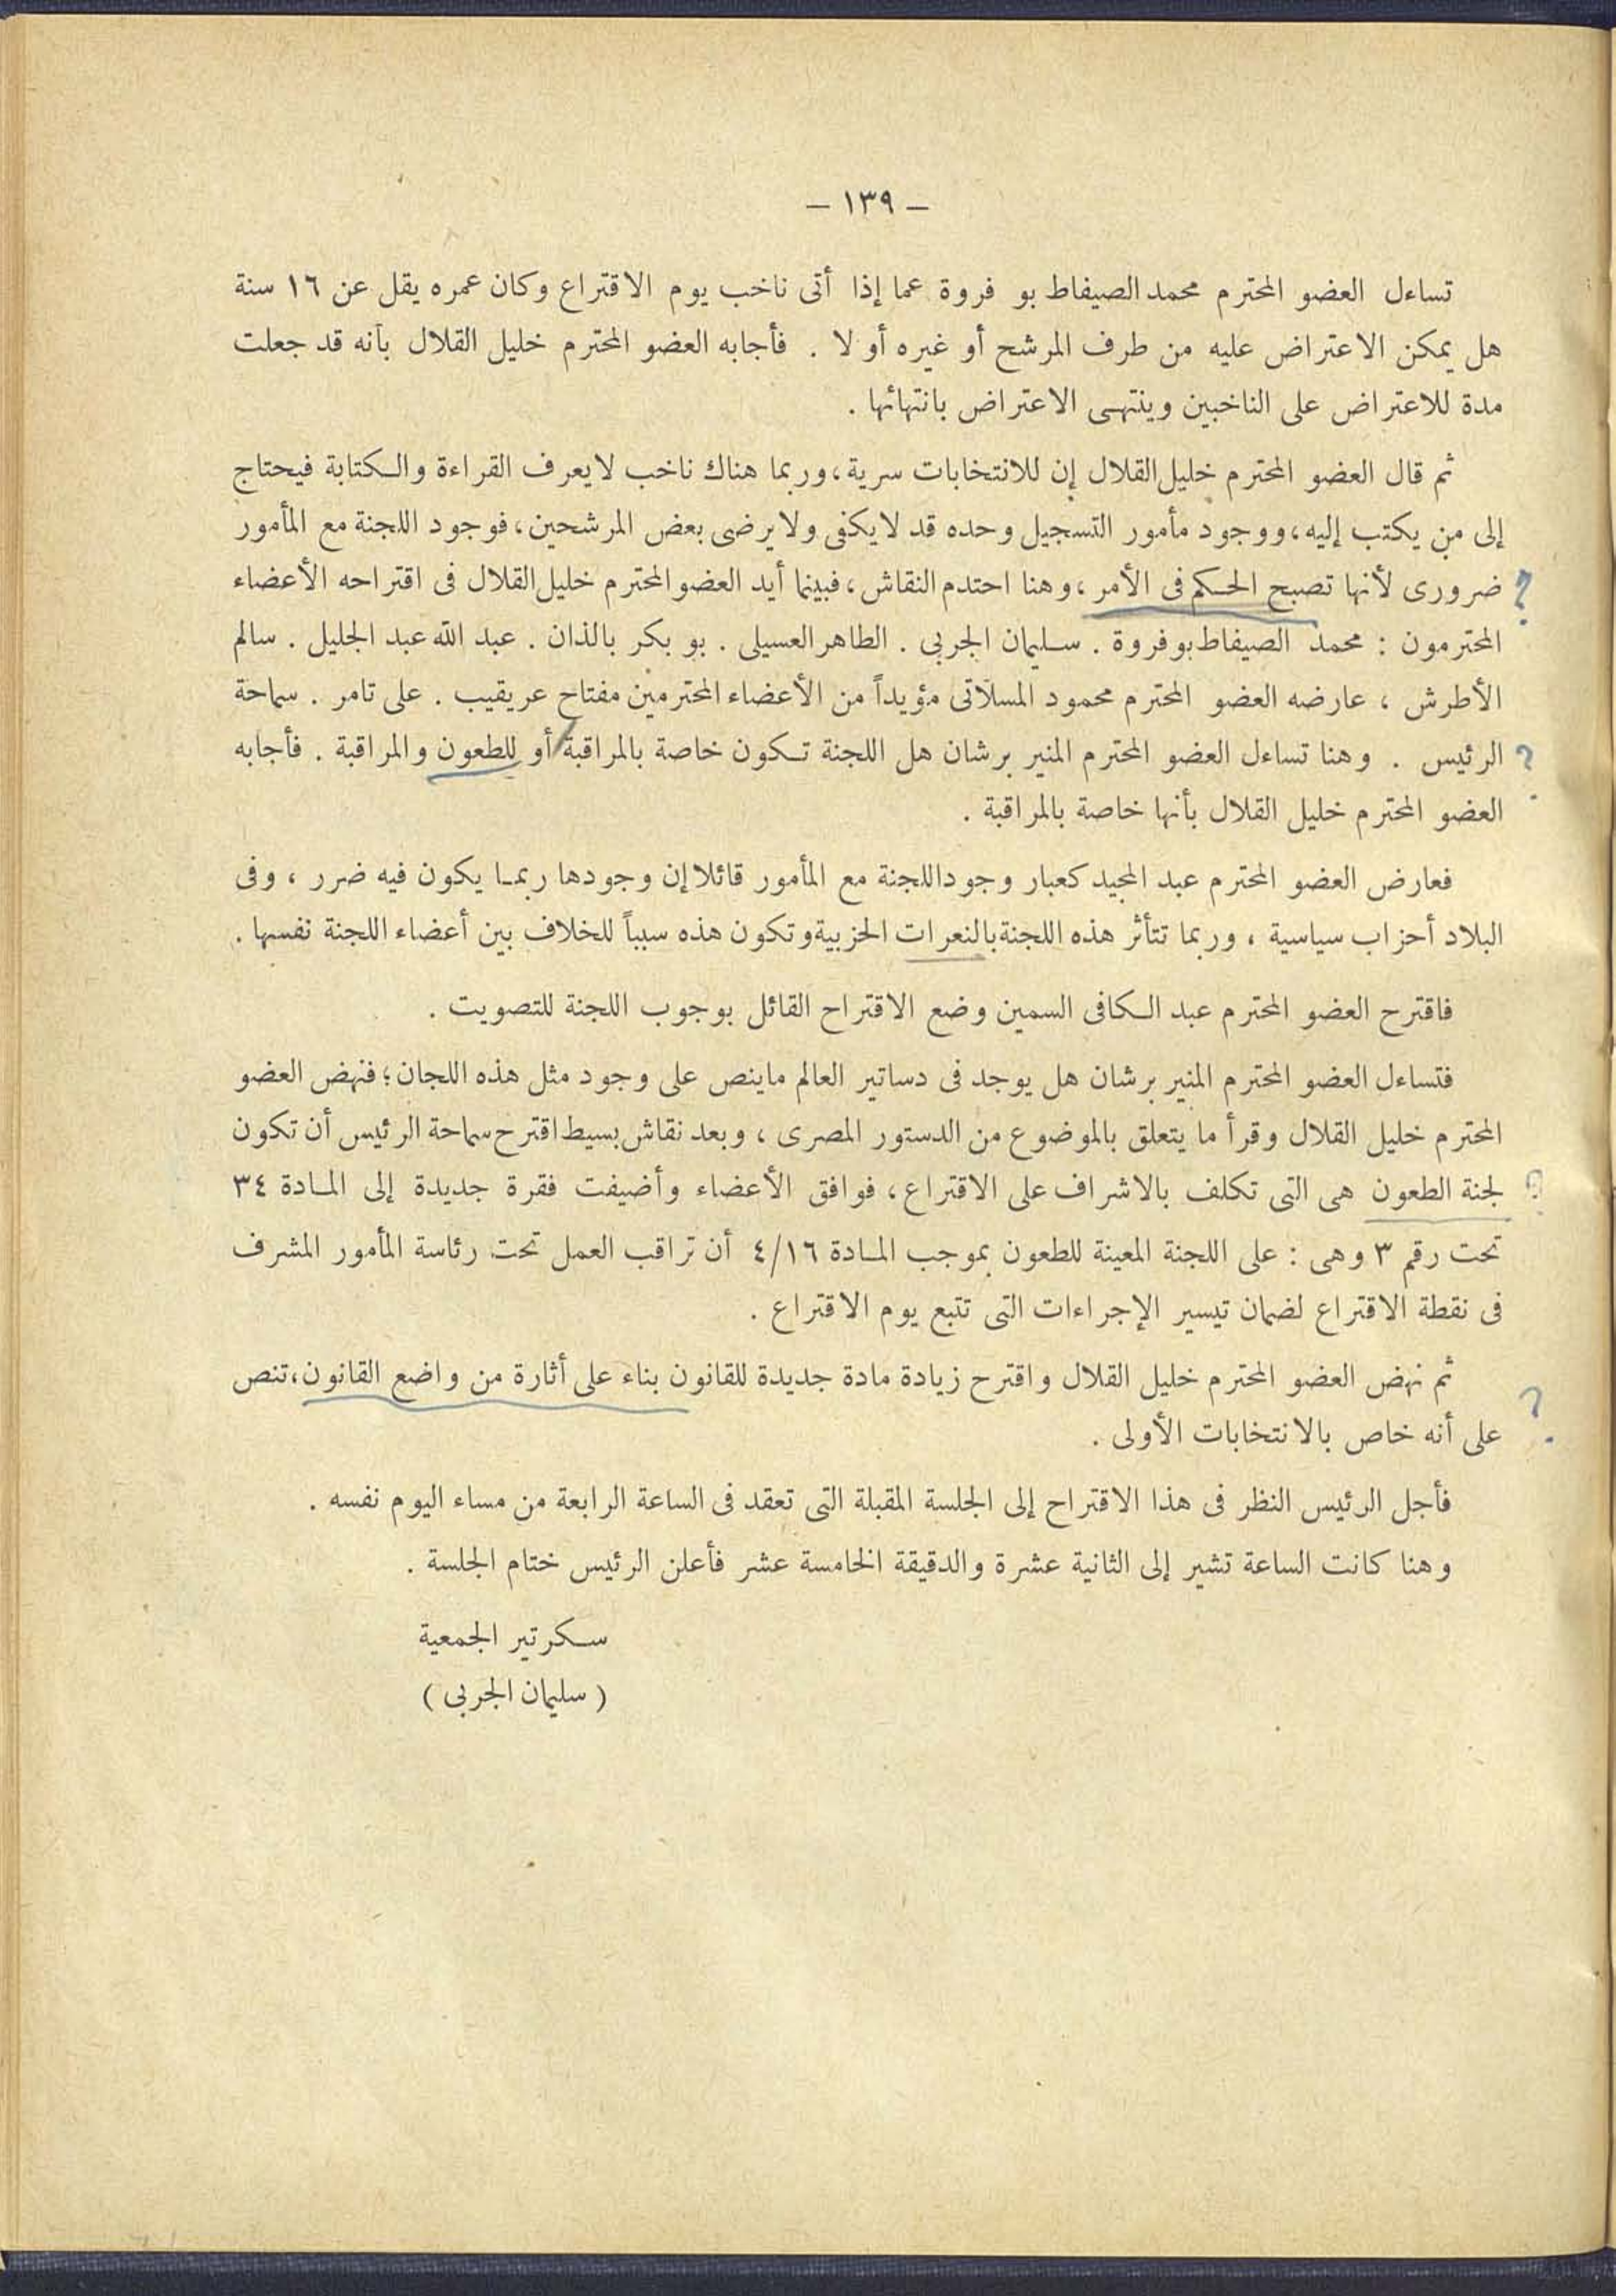 — ١٣٩ —
تساءل العضو المحترم محمد الصيفاط بو فروة عما إذا أتى ناخب يوم الاقتراع وكان عمره يقل عن ١٦ سنة
هل يمكن الاعتراض عليه من طرف المرشح أو غيره أو لا . فأجابه العضو المحترم خليل القلال بأنه قد جعلت
مدة للاعتراض على الناخبين وينتهى الاعتراض بانتهائها .
ثم قال العضو المحترم خليل القلال إن للانتخابات سرية، وربما هناك ناخب لايعرف القراءة والكتابة فيحتاج
إلى من يكتب إليه، ووجود مأمور التسجيل وحده قد لايكفى ولايرضى بعض المرشحين، فوجود اللجنة مع المأمور
؟ ضرورى لأنها تصبح الحكم فى الأمر، وهنا احتدم النقاش، فبينما أيد العضو المحترم خليل القلال فى اقتراحه الأعضاء
المحترمون : محمد الصيفاط بوفروة . سليمان الجربى . الطاهر العسيلى . بو بكر بالذان . عبد الله عبد الجليل . سالم
الأطرش ، عارضه العضو المحترم محمود المسلاتى مؤيداً من الأعضاء المحترمين مفتاح عريقيب . على تامر . سماحة
؟ الرئيس . وهنا تساءل العضو المحترم المنير برشان هل اللجنة تكون خاصة بالمراقبة / أو للطعون والمراقبة . فأجابه
العضو المحترم خليل القلال بأنها خاصة بالمراقبة .
فعارض العضو المحترم عبد المجيد كعبار وجود اللجنة مع المأمور قائلا إن وجودها ربما يكون فيه ضرر ، وفى
البلاد أحزاب سياسية ، وربما تتأثر هذه اللجنة بالنعرات الحزبية وتكون هذه سبباً للخلاف بين أعضاء اللجنة نفسها .
فاقترح العضو المحترم عبد الكافى السمين وضع الاقتراح القائل بوجوب اللجنة للتصويت .
فتساءل العضو المحترم المنير برشان هل يوجد فى دساتير العالم ماينص على وجود مثل هذه اللجان؛ فنهض العضو
المحترم خليل القلال وقرأ ما يتعلق بالموضوع من الدستور المصرى ، وبعد نقاش بسيط اقترح سماحة الرئيس أن تكون
؟ لجنة الطعون هى التى تكلف بالاشراف على الاقتراع، فوافق الأعضاء وأضيفت فقرة جديدة إلى المادة ٣٤
تحت رقم ٣ وهى : على اللجنة المعينة للطعون بموجب المادة ٤/١٦ أن تراقب العمل تحت رئاسة المأمور المشرف
فى نقطة الاقتراع لضمان تيسير الإجراءات التى تتبع يوم الاقتراع .
؟ ثم نهض العضو المحترم خليل القلال واقترح زيادة مادة جديدة للقانون بناء على أثارة من واضع القانون، تنص
على أنه خاص بالانتخابات الأولى .
فأجل الرئيس النظر فى هذا الاقتراح إلى الجلسة المقبلة التى تعقد فى الساعة الرابعة من مساء اليوم نفسه .
وهنا كانت الساعة تشير إلى الثانية عشرة والدقيقة الخامسة عشر فأعلن الرئيس ختام الجلسة .
سكرتير الجمعية
( سليمان الجربى )